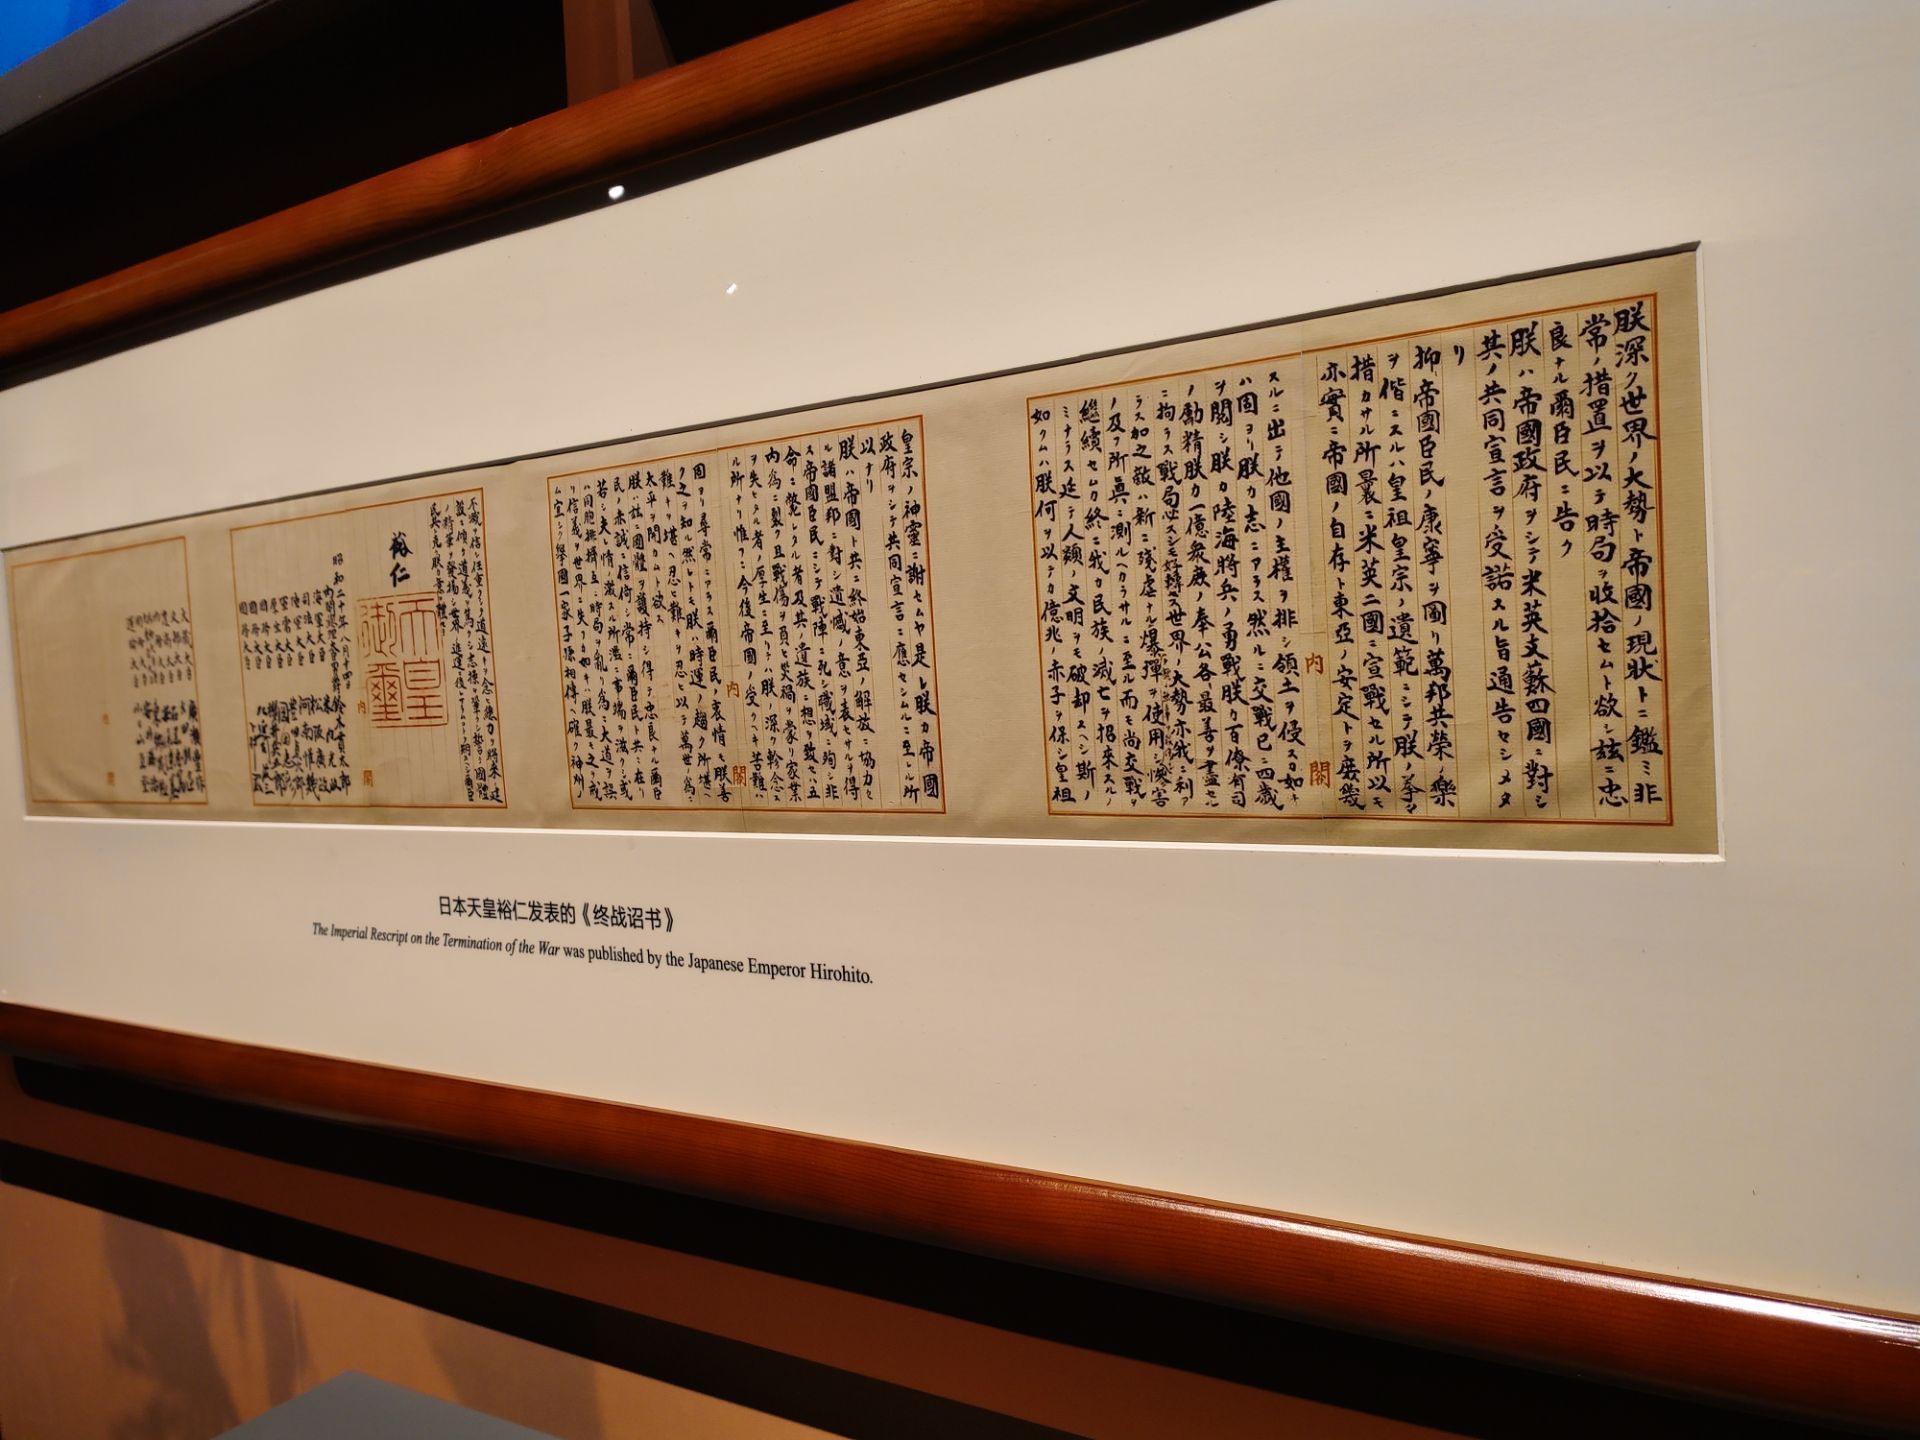 朕深ク世界ノ大勢ト帝國ノ現狀トニ鑑ミ非
常ノ措置ヲ以テ時局ヲ收拾セムト欲シ茲ニ忠
良ナル爾臣民ニ告ク
朕ハ帝國政府ヲシテ米英支蘇四國ニ對シ
其ノ共同宣言ヲ受諾スル旨通告セシメタ
リ
抑帝國臣民ノ康寧ヲ圖リ萬邦共榮ノ樂
ヲ偕ニスルハ皇祖皇宗ノ遺範ニシテ朕ノ拳々
措カサル所曩ニ米英二國ニ宣戰セル所以モ
亦實ニ帝國ノ自存ト東亞ノ安定トヲ庶幾
内閣
スルニ出テ他國ノ主權ヲ排シ領土ヲ侵スカ如キ
ハ固ヨリ朕カ志ニアラス然ルニ交戰已ニ四歲
ヲ閱シ朕カ陸海將兵ノ勇戰朕カ百僚有司
ノ勵精朕カ一億衆庶ノ奉公各最善ヲ盡セル
ニ拘ラス戰局必スシモ好轉セス世界ノ大勢亦我ニ利ア
ラス加之敵ハ新ニ殘虐ナル爆彈ヲ使用シ慘害
ノ及フ所眞ニ測ルヘカラサルニ至ル而モ尚交戰ヲ
繼續セムカ終ニ我カ民族ノ滅亡ヲ招來スルノ
ミナラス延テ人類ノ文明ヲモ破却スヘシ斯ノ
如クムハ朕何ヲ以テカ億兆ノ赤子ヲ保シ皇祖
皇宗ノ神靈ニ謝セムヤ是レ朕カ帝國
政府ヲシテ共同宣言ニ應セシムルニ至レル所
以ナリ
朕ハ帝國ト共ニ終始東亞ノ解放ニ協力セ
ル諸盟邦ニ對シ遺憾ノ意ヲ表セサルヲ得
ス帝國臣民ニシテ戰陣ニ死シ職域ニ殉シ非
命ニ斃レタル者及其ノ遺族ニ想ヲ致セハ五
內爲ニ裂ク且戰傷ヲ負ヒ災禍ヲ蒙リ家業
ヲ失ヒタル者ノ厚生ニ至リテハ朕ノ深ク軫念ス
ル所ナリ惟フニ今後帝國ノ受クヘキ苦難ハ
内閣
固ヨリ尋常ニアラス爾臣民ノ衷情モ朕善
ク之ヲ知ル然レトモ朕ハ時運ノ趨ク所堪ヘ
難キヲ堪ヘ忍ヒ難キヲ忍ヒ以テ萬世ノ爲ニ
太平ヲ開カムト欲ス
朕ハ茲ニ國體ヲ護持シ得テ忠良ナル爾臣
民ノ赤誠ニ信倚シ常ニ爾臣民ト共ニ在リ
若シ夫レ情ノ激スル所濫ニ事端ヲ滋クシ或
ハ同胞排擠互ニ時局ヲ亂リ爲ニ大道ヲ誤
リ信義ヲ世界ニ失フカ如キハ朕最モ之ヲ戒
ム宜シク擧國一家子孫相傳ヘ確ク神州ノ
不滅ヲ信シ任重クシテ道遠キヲ念ヒ總力ヲ將來ノ建
設ニ傾ケ道義ヲ篤クシ志操ヲ鞏クシ誓テ國體
ノ精華ヲ發揚シ世界ノ進運ニ後レサラムコトヲ期スヘシ爾臣
民其レ克ク朕カ意ヲ體セヨ
裕仁
天皇
御璽
内閣
昭和二十年八月十四日
内閣總理大臣男爵 鈴木貫太郎
海軍大臣 米内光政
司法大臣 松阪廣政
陸軍大臣 阿南惟幾
軍需大臣 豐田貞次郎
厚生大臣
國務大臣 櫻井兵五郎
國務大臣
國務大臣 下村宏
大藏大臣 廣瀨豐作
文部大臣
日本天皇裕仁发表的《终战诏书》
The Imperial Rescript on the Termination of the War was published by the Japanese Emperor Hirohito.